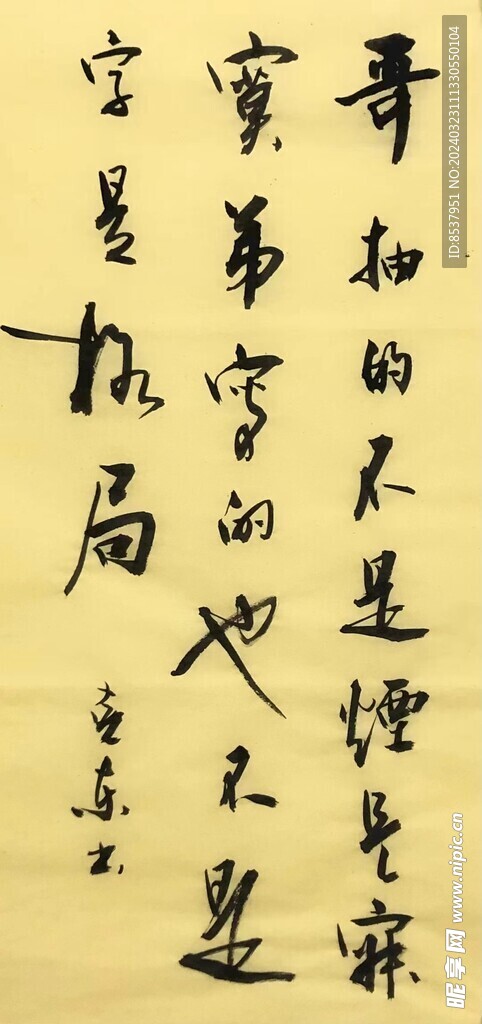 哥抽的不是煙是寂
寞弟寫的也不是
字是格局
喜東书
ID:8537951 NO:20240323111330550104
昵享网 www.nipic.cn